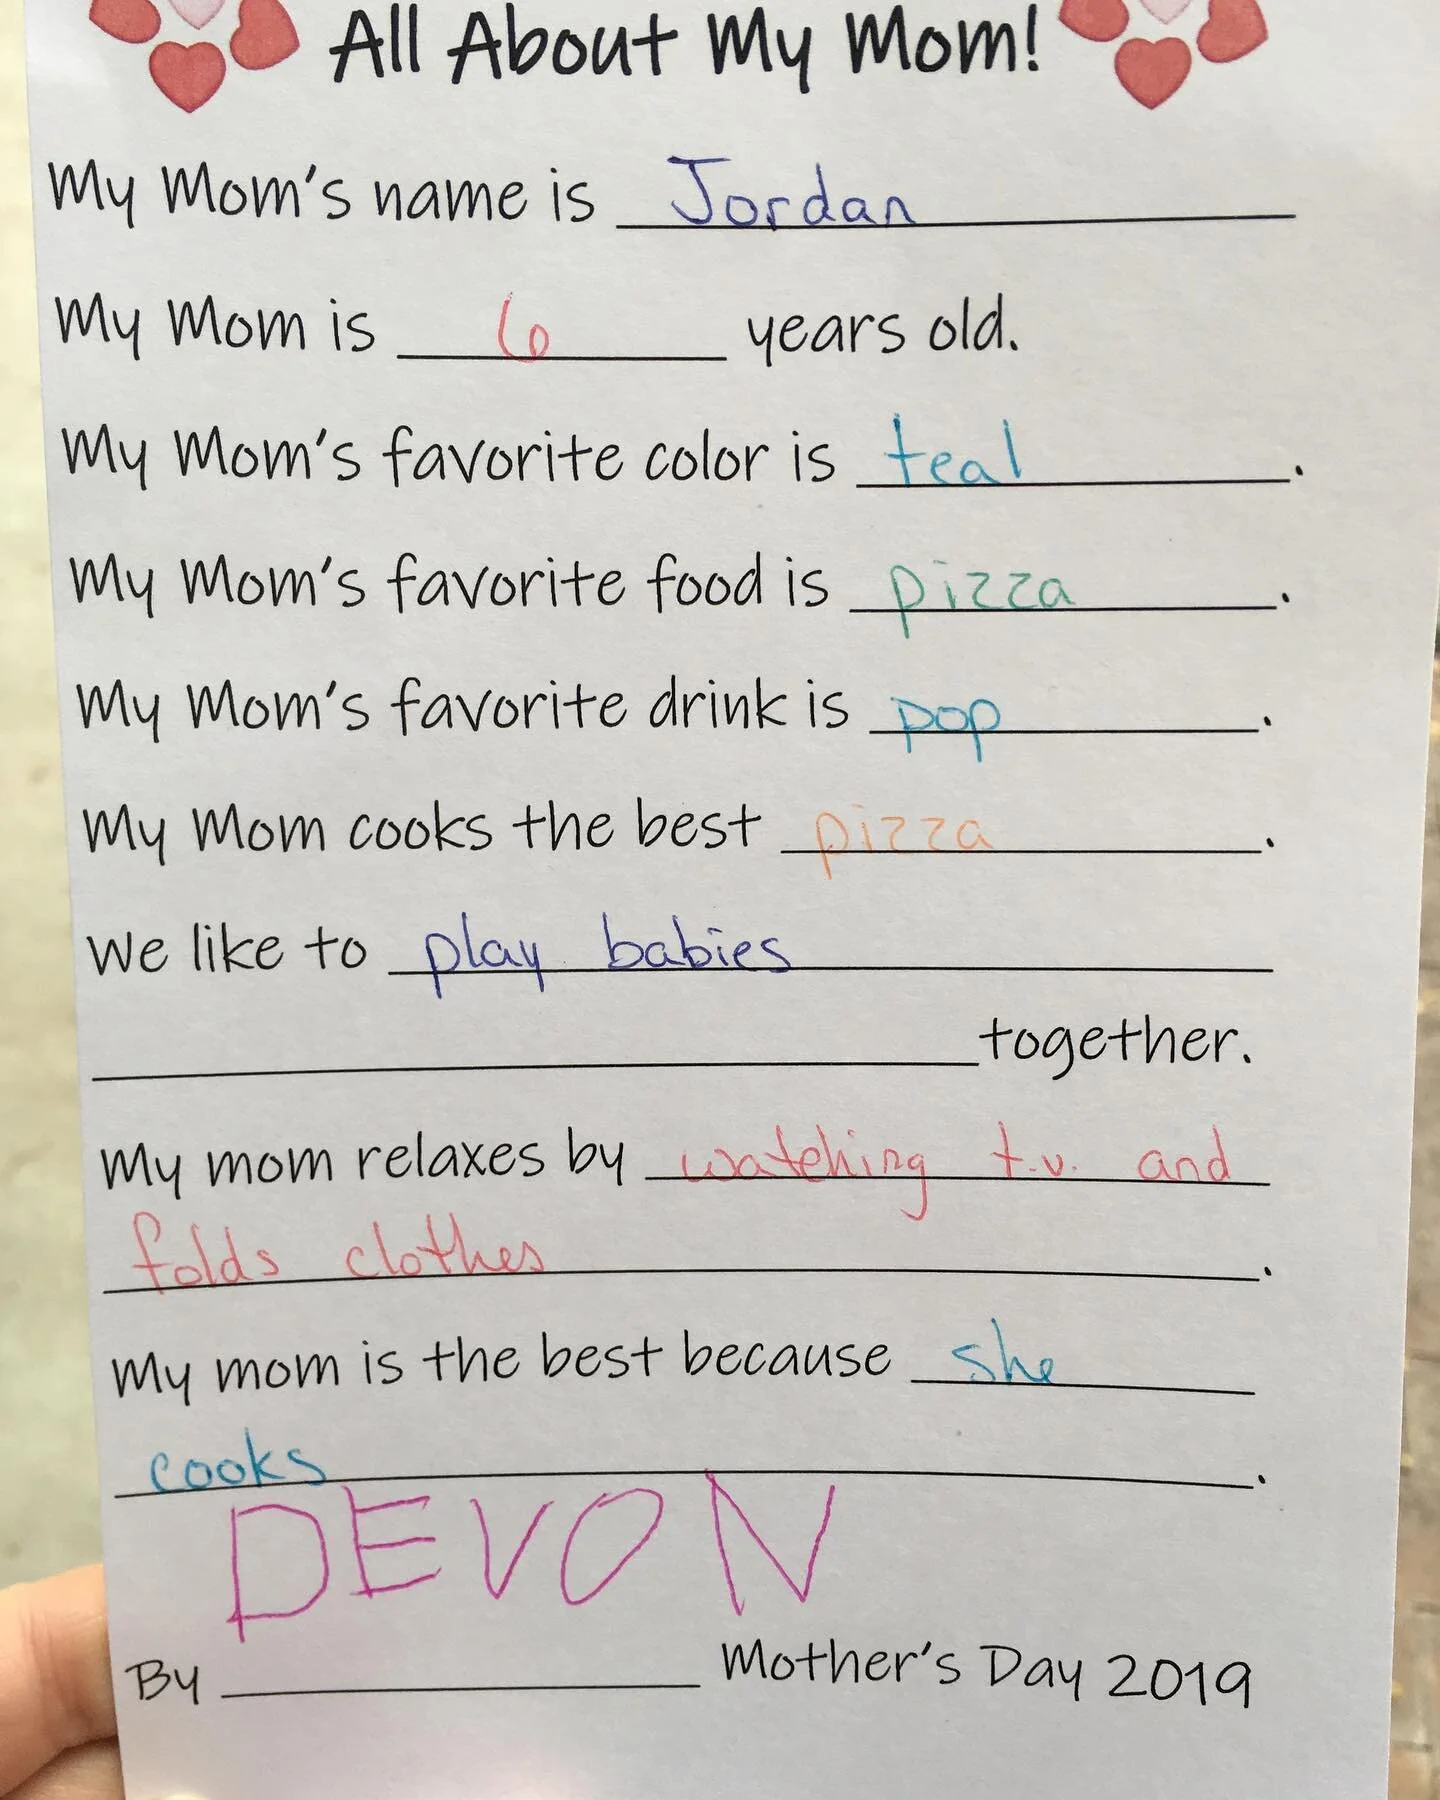 All About My Mom!
My Mom's name is Jordan
My Mom is 6 years old.
My Mom's favorite color is teal.
My Mom's favorite food is pizza.
My Mom's favorite drink is pop.
My Mom cooks the best pizza.
We like to play babies
together.
My mom relaxes by watching t.v. and
folds clothes.
My mom is the best because she
cooks.
DEVON
By Mother's Day 2019